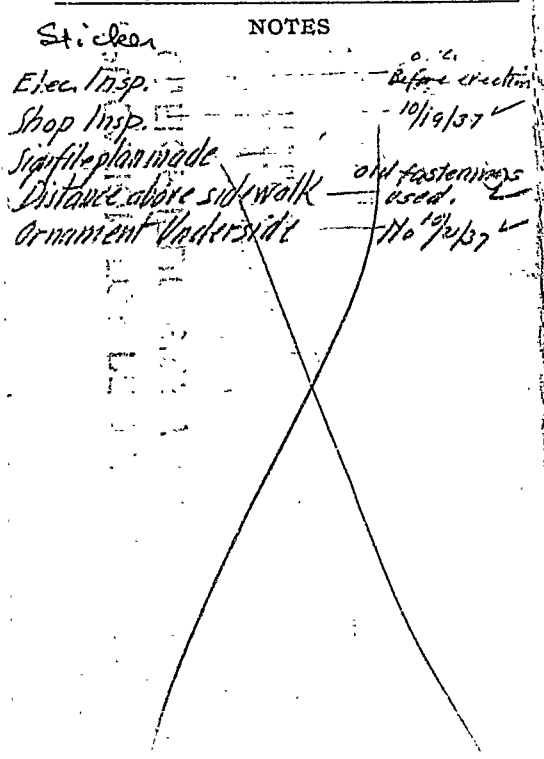 NOTES
Sticker
Elec. Insp. — Before erection
Shop Insp. — 10/19/37 ✓
Signfile plan made —
Distance above sidewalk — old fastenings used. ✓
Ornament Underside — No 10/21/37 ✓